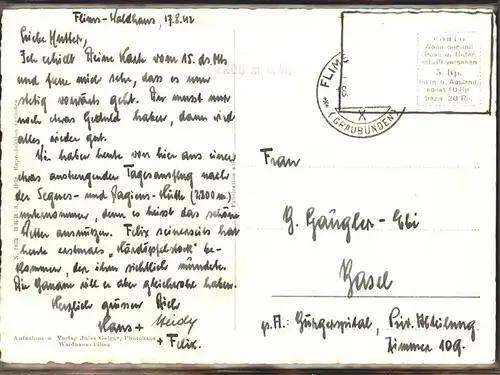 Flims-Waldhaus, 17.8.42
Liebe Mutter,
Ich erhielt Deine Karte vom 15. ds. Mts
und freue mich sehr, dass es nun
stetig vorwärts geht. Du musst nur
noch etwas Geduld haben, dann wird
alles wieder gut.
Wir haben heute von hier aus einen
etwas anstrengenden Tagesausflug nach
der Segnes- und Hütte (2200m)
unternommen, denn es heisst das schöne
Wetter ausnützen. Felix seinerseits hat
heute erstmals "Härdöpfelstock" be-
kommen, der ihm sichtlich mundete.
Die Banane will er aber gleichwohl haben.
Herzlich grüssen Dich
Hans + Heidy
+ Felix.
Aufnahme u. Verlag Jules Geiger, Photohaus
Waldhaus-Flims
PORTO
Wenn nur mit
Gruss u. Unter-
schrift versehen
5 Rp.
sonst 10 Rp.
bezw. 20 Rp.
FLIMS
(GRAUBÜNDEN)
X
Frau
B. Gäugler-Ebi
Basel
p.A: Bürgerspital, Priv. Abteilung
Zimmer 109.